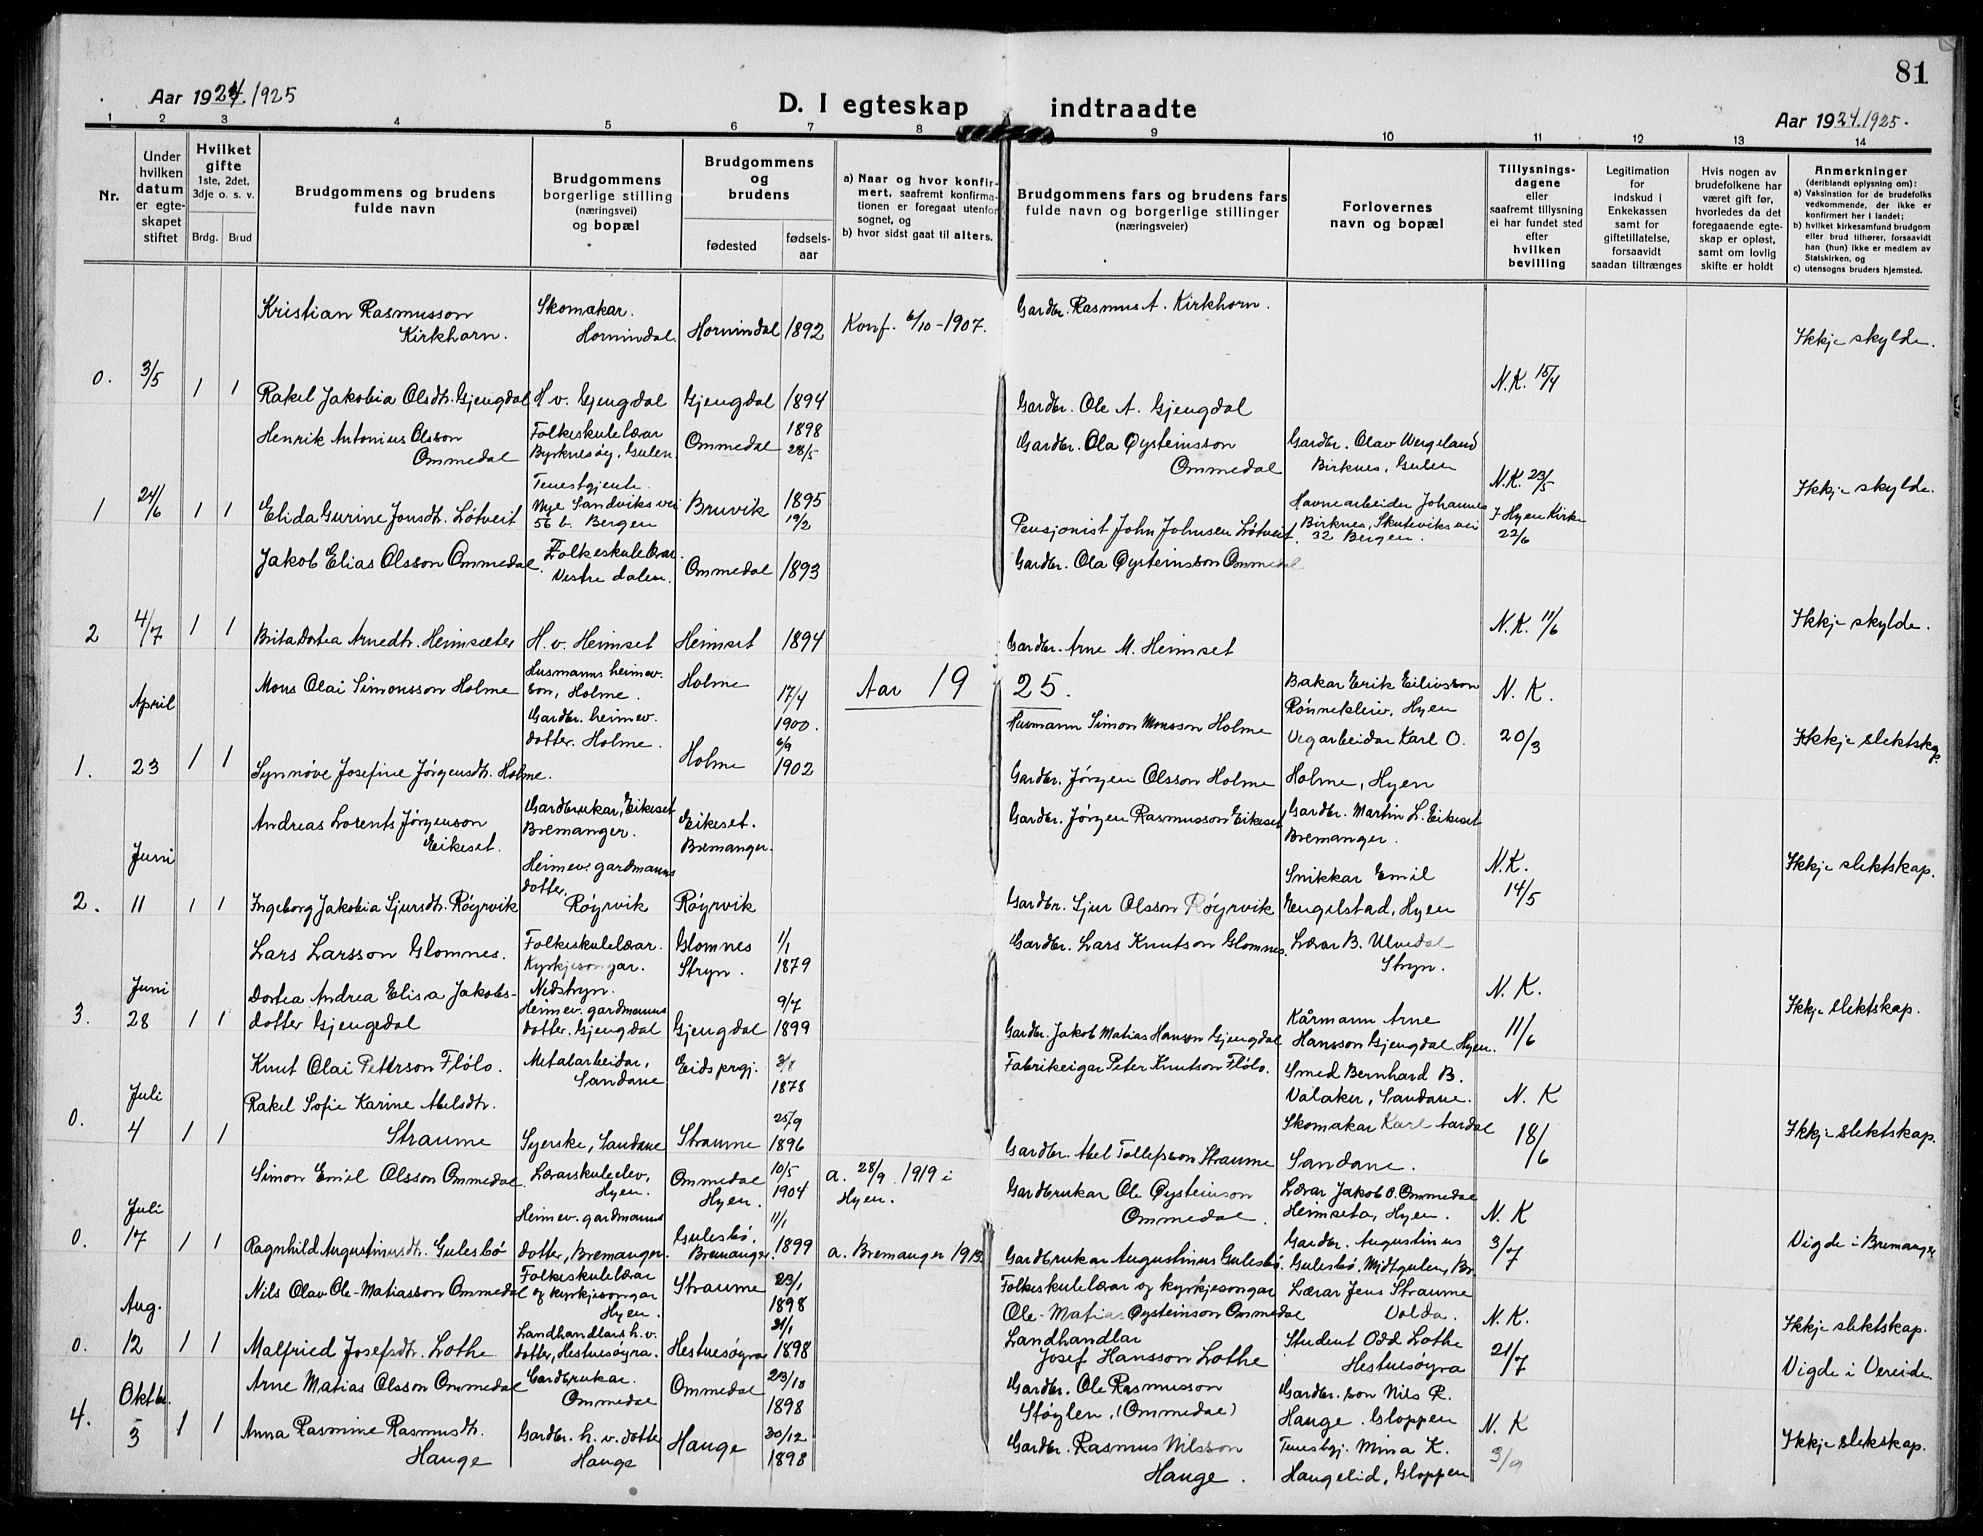 81
Aar 1924. 1925
D. I egteskap indtraadte
Aar 1924. 1925.
1 2 3 4 5 6 7 8 9 10 11 12 13 14
Nr.
Under hvilken datum er egteskapet stiftet
Hvilket gifte
1ste, 2det, 3dje o. s. v.
Brdg. Brud
Brudgommens og brudens fulde navn
Brudgommens borgerlige stilling (næringsvei) og bopæl
Brudgommens og brudens
fødested
fødsels-aar
a) Naar og hvor konfirmert, saafremt konfirmationen er foregaat utenfor sognet, og
b) hvor sidst gaat til alters.
Brudgommens fars og brudens fars fulde navn og borgerlige stillinger (næringsveier)
Forlovernes navn og bopæl
Tillysnings-dagene eller saafremt tillysning ei har fundet sted efter hvilken bevilling
Legitimation for indskud i Enkekassen samt for giftetillatelse, forsaavidt saadan tiltrænges
Hvis nogen av brudefolkene har været gift før, hvorledes da det foregaaende egteskap er opløst, samt om lovlig skifte er holdt
Anmerkninger
(deriblandt oplysning om):
a) Vaksination for de brudefolks vedkommende, der ikke er konfirmert her i landet;
b) hvilket kirkesamfund brudgom eller brud tilhører, forsaavidt han (hun) ikke er medlem av Statskirken, og
c) utensogns bruders hjemsted.
Kristian Rasmusson Kirkhorn. Skomakar. Hornindal. Hornindal 1892 Konf. 6/10-1907. Gardbr. Rasmus A. Kirkhorn. Ikkje skylde.
0. 3/5 1 1 N.K. 15/4
Rakel Jakobia Olsdtr. Gjengdal H. v. Gjengdal Gjengdal 1894 Gardbr. Ole A. Gjengdal
Henrik Antonius Olsson Ommedal Folkeskulelærar Byrknesøy, Gulen. Ommedal 1898 28/5 Gardbr. Ola Øysteinsson Ommedal Gardbr. Olav Wergeland Birknes, Gulen
1 24/6 1 1 N.K. 23/5 Ikkje skylde.
Elida Gurine Jonsdtr. Løtveit Tenestgjente Nye Sandviksvei 56 b. Bergen Bruvik 1895 19/2 Pensjonist John Johnsen Løtveit. Havnearbeider Johannes Birknes, Skuteviksvei 32 Bergen. I Hyen Kirke 22/6
Jakob Elias Olsson Ommedal Folkeskulelærar. Vestre dalen. Ommedal 1893 Gardbr. Ola Øysteinsson Ommedal
2 4/7 1 1 N.K. 11/6 Ikkje skylde.
Brita Dortea Arnedtr. Heimsæter H. v. Heimset Heimset 1894 Gardbr. Arne M. Heimset
Aar 1925.
Mons Olai Simonsson Holme Husmanns heimev. son, Holme. Holme 17/4 1900. Husmann Simon Monsson Holme Bakar Erik Eilivsson Rønnekleiv, Hyen N. K.
1. April 23 1 1 20/3 Ikkje slektskap.
Synnøve Josefine Jørgensdtr. Holme. Gardbr. heimev. dotter. Holme. Holme 6/9 1902 Gardbr. Jørgen Olsson Holme Vegarbeidar Karl O. Holme, Hyen
Andreas Lorents Jørgenson Eikeset. Gardbrukar, Eikeset Bremanger. Eikeset. Bremanger. Gardbr. Jørgen Rasmusson Eikeset Gardbr. Martin L. Eikeset Bremanger.
2. Juni 11 1 1 N.K. 14/5 Ikkje slektskap.
Ingeborg Jakobia Sjursdtr. Røyrvik Heimev. gardmanns dotter, Røyrvik Røyrvik Gardbr. Sjur Olsson Røyrvik Snikkar Emil Engelstad, Hyen
Lars Larsson Glomnes. Folkeskulelærar. Kyrkjesongar. Nedstryn. Glomnes Stryn. 1/1 1879 Gardbr. Lars Knutson Glomnes. Lærar B. Ulvedal Stryn.
3. Juni 28 1 1 N. K. 11/6 Ikkje slektskap.
Dortea Andrea Elisa Jakobs-dotter Gjengedal Heimev. gardmanns dotter. Gjengdal Gjengdal 9/7 1899 Gardbr. Jakob Matias Hansson Gjengdal Kårmann Arne Hansson Gjengdal. Hyen.
Knut Olai Peterson Flølo. Metalarbeidar, Sandane Eids prgj. 3/8 1878 Fabrikeigar Peter Knutson Flølo. Smed Bernhard B. Valaker, Sandane.
0. Juli 4 1 1 N. K 18/6 Ikkje slektskap.
Rakel Sofie Karine Abelsdtr. Straume Syerske, Sandane Straume 25/9 1896 Gardbr. Abel Tollefsson Straume Skomakar Karl Aardal Sandane.
Simon Emil Olsson Ommedal. Lærarskuleelev, Hyen. Ommedal Hyen. 10/5 1904 a. 28/9 1919 i Hyen. Gardbrukar Ole Øysteinson Ommedal. Lærar Jakob O. Ommedal Heimseta, Hyen.
0. Juli 17 1 1 N. K 3/7 Vigde i Bremanger
Ragnhild Augustinusdtr. Gulesbø Heimev. gardmanns dotter, Bremanger. Gulesbø, Bremanger. 11/1 1899 a. Bremanger 1913. Gardbrukar Augustinus Gulesbø. Gardbr. Augustinus Gulesbø, Midtgulen, Br.
Nils Olav Ole-Matiasson Ommedal Folkeskulelærar og kyrkjesongar Hyen. Straume 23/1 1898 Folkeskulelærar og kyrkjesongar Ole-Matias Øysteinson Ommedal Lærar Jens Straume Volda.
0. Aug. 12 1 1 N. K. 21/7 Ikkje slektskap. Vigde i Vereide
Malfried Josefsdtr. Lothe Landhandlars h. v. dotter, Hestnesøyra. Hestnesøyra 21/1 1898 Landhandlar Josef Hansson Lothe Student Odd Lothe Hestnesøyra
Arne Matias Olsson Ommedal Gardbrukar. Ommedal Ommedal 23/10 1898 Gardbr. Ole Rasmusson Støylen, (Ommedal) Gardbr. son Nils R. Hauge. Gloppen
4. Oktbr. 3 1 1 N. K 3/9 Ikkje slekskap.
Anna Rasmine Rasmusdtr. Hauge Gardbr. h. v. dotter Hauge Hauge 30/12 1898 Gardbr. Rasmus Nilsson Hauge. Tenestgj. Mina K. Haugelid, Gloppen